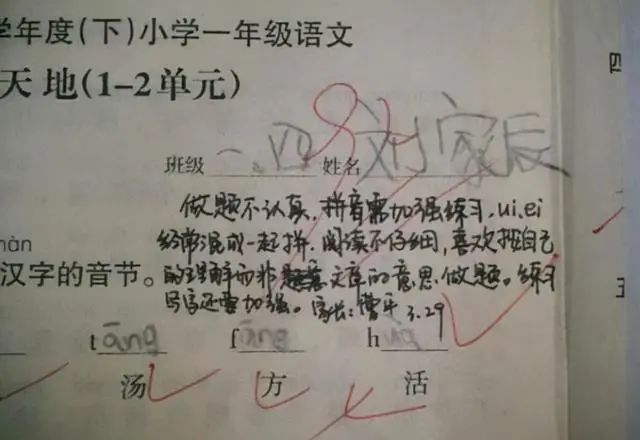 学年度(下)小学一年级语文
天地(1-2单元)
班级 一.四 姓名 刘家辰
做题不认真,拼音需加强练习,ui.ei
经常混成一起拼.阅读不仔细,喜欢按自己
的理解而非文章的意思做题。练习
写字还要加强。家长:曹平 3.29
汉字的音节。
tāng fāng huó
汤 方 活
四
五